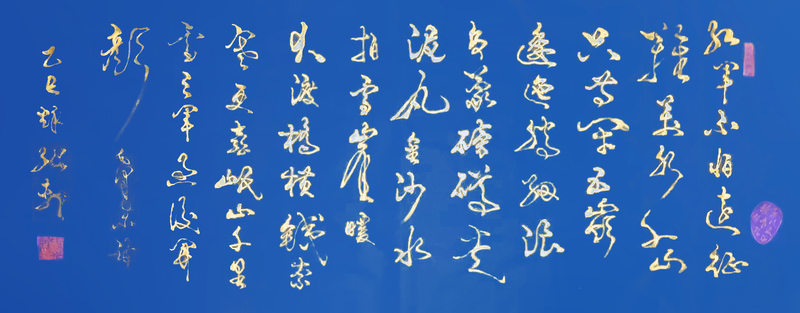 紅軍不怕遠征
難萬水千山
只等闲五嶺
逶迤腾细浪
乌蒙磅礴走
泥丸金沙水
拍雲崖暖
大渡橋橫鐵索
寒更喜岷山千里
雪三軍過後開
顏 毛泽东詩
乙巳